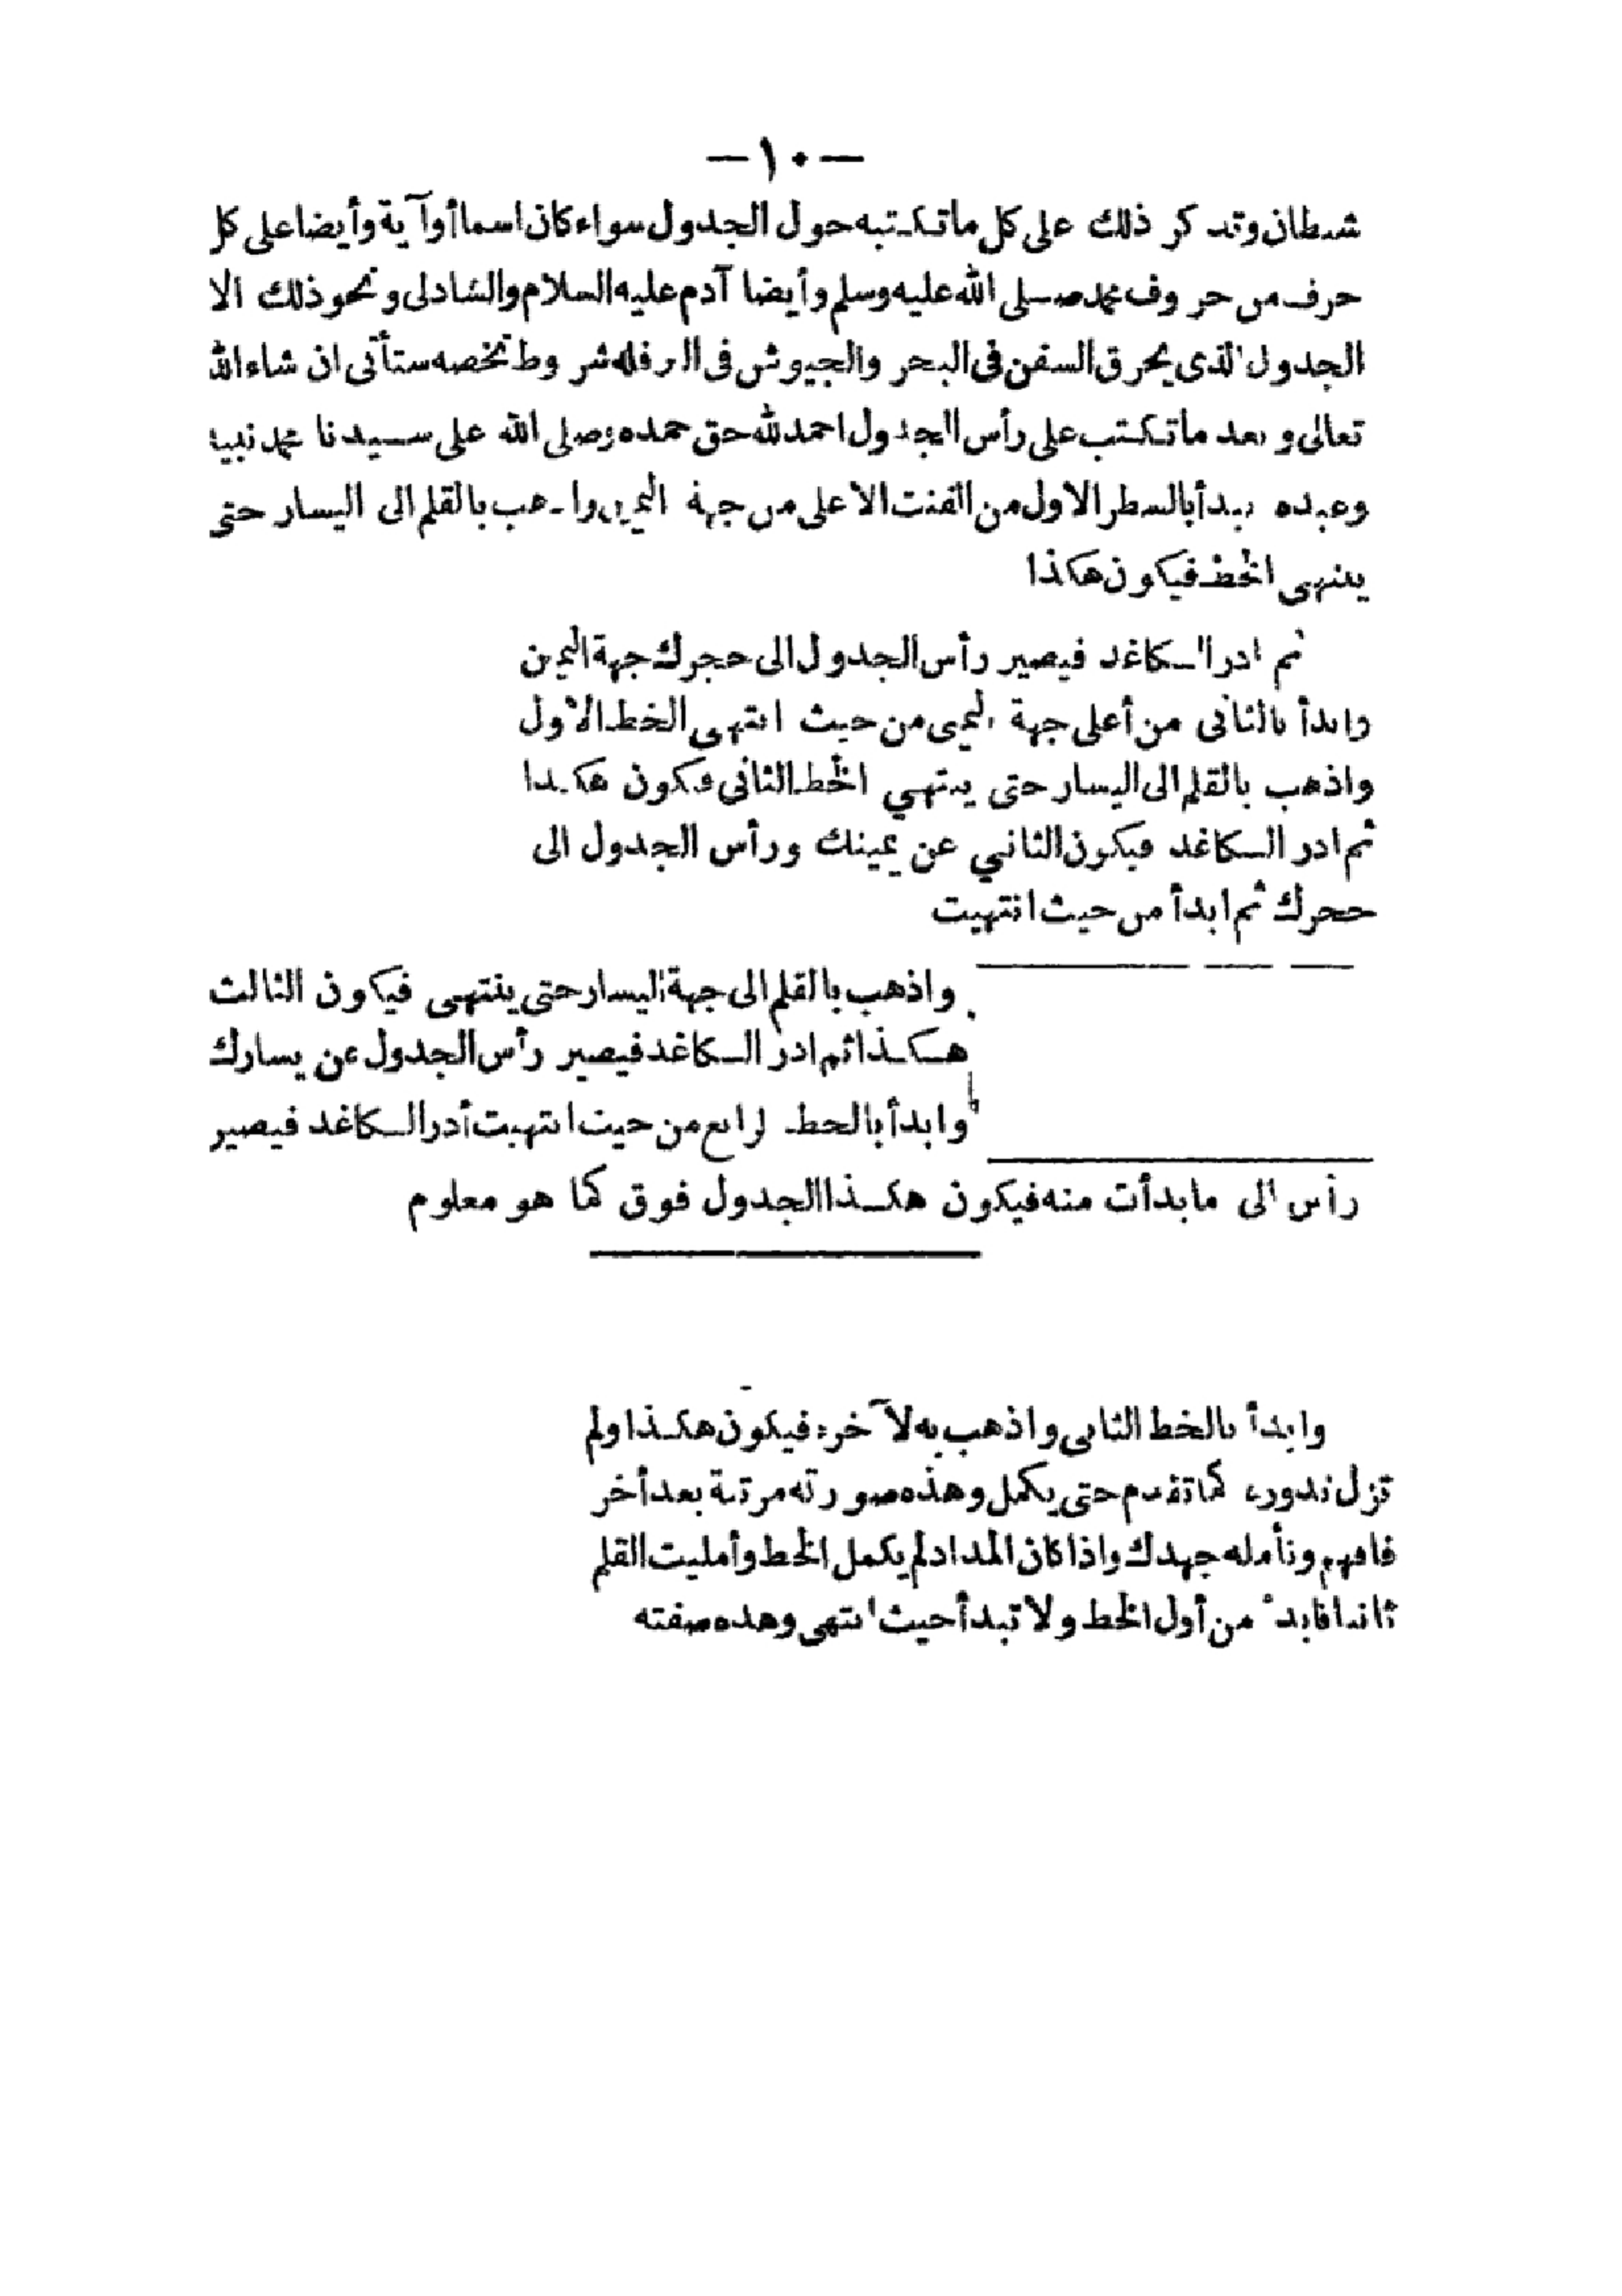 — ١٠ —
شيطان وتذكر ذلك على كل ما تكتبه حول الجدول سواء كان اسما أو آية وأيضا على كل
حرف من حروف محمد صلى الله عليه وسلم وأيضا آدم عليه السلام والشاذلى ونحو ذلك الا
الجدول الذى يحرق السفن فى البحر والجيوش فى البر فله شروط تخصه ستأتى ان شاء الله
تعالى وبعد ما تكتب على رأس الجدول احمد لله حق حمده وصلى الله على سيدنا محمد نبيه
وعبده يبدأ بالسطر الاول من الفنت الاعلى من جهة اليمين واذهب بالقلم الى اليسار حتى
ينتهى الخط فيكون هكذا
ثم ادر الكاغد فيصير رأس الجدول الى حجرك جهة اليمين
وابدأ بالثانى من أعلى جهة اليمى من حيث انتهى الخط الاول
واذهب بالقلم الى اليسار حتى ينتهي الخط الثانى فكون هكذا
ثم ادر الكاغد فيكون الثاني عن يمينك ورأس الجدول الى
حجرك ثم ابدأ من حيث انتهيت
واذهب بالقلم الى جهة اليسار حتى ينتهى فيكون الثالث
هكذا ثم ادر الكاغد فيصير رأس الجدول عن يسارك
وابدأ بالخط الرابع من حيث انتهيت أدر الكاغد فيصير
رأس الى ما بدأت منه فيكون هكذا الجدول فوق كما هو معلوم
وابدأ بالخط الثانى واذهب به لآخره فيكون هكذا ولم
تزل تدوره كما تقدم حتى يكمل وهذه صورته مرتبة بعد أخر
فافهم وتأمله جهدك واذا كان المداد لم يكمل الخط وأمليت القلم
ثانيا فابدأ من أول الخط ولا تبدأ حيث انتهى وهده صفته